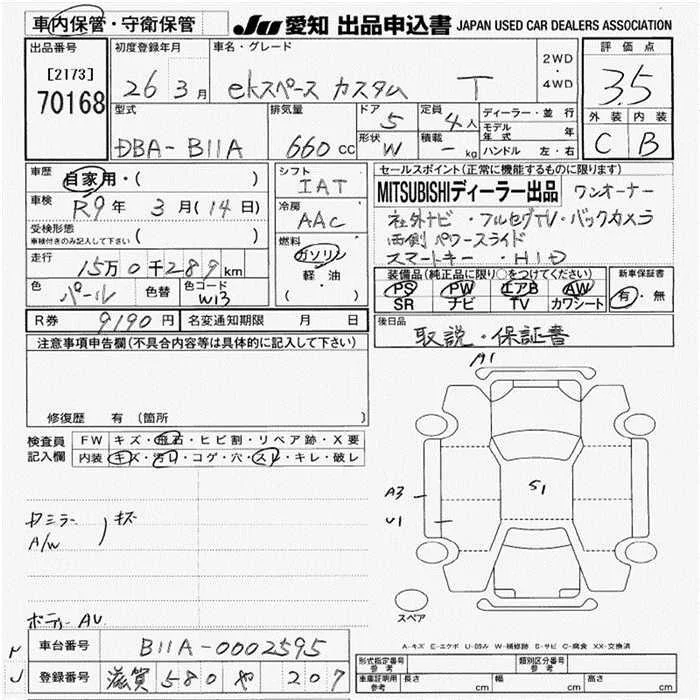 車内保管・守衛保管
JU 愛知 出品申込書 JAPAN USED CAR DEALERS ASSOCIATION
出品番号
[2173]
70168
初度登録年月
26 3月
車名・グレード
ekスペース カスタム T
2WD
・
4WD
評価点
3.5
外装 内装
C B
型式
DBA-B11A
排気量
660 cc
ドア
5
定員
4人
形状
W
積載
- kg
ディーラー・並行
モデル年式 年
ハンドル 左・右
車歴
自家用・( )
車検
R9年 3月(14日)
受検形態
車検付きのみ記入して下さい ( )
走行
15万0千289km
色
パール
色替
色コード
W13
シフト
IAT
冷房
AAC
燃料
ガソリン
軽・油
( ・ )
セールスポイント(正常に機能するものに限ります)
MITSUBISHIディーラー出品 ワンオーナー
社外ナビ・フルセグTV・バックカメラ
両側パワースライド
スマートキー・HID
装備品(純正品に限り○をつけてください)
PS PW エアB AW
SR ナビ TV カワシート
新車保証書
有・無
R券 9190円 名変通知期限 月 日
後日品
取説・保証書
注意事項申告欄(不具合内容等は具体的に記入して下さい)
修復歴 有 (箇所
検査員
記入欄
FW キズ・飛石・ヒビ割・リペア跡・X要
内装 キズ・汚れ・コゲ・穴・スレ・キレ・破レ
A1
S1
A3
U1
スペア
ミラー
A/W
キズ
ボディー AU
A-キズ E-エクボ U-凹み W-補修跡 S-サビ C-腐食 XX-交換済
車台番号 B11A-0002595
登録番号 滋賀 580 や 207
型式指定番号
参考
類別区分番号
参考
車庫証明用
参考
長さ cm 幅 cm 高さ cm